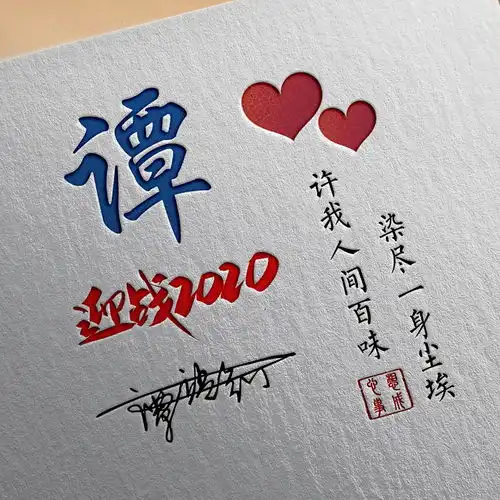 谭
迎战2020
染尽一身尘埃
许我人间百味
心想
事成